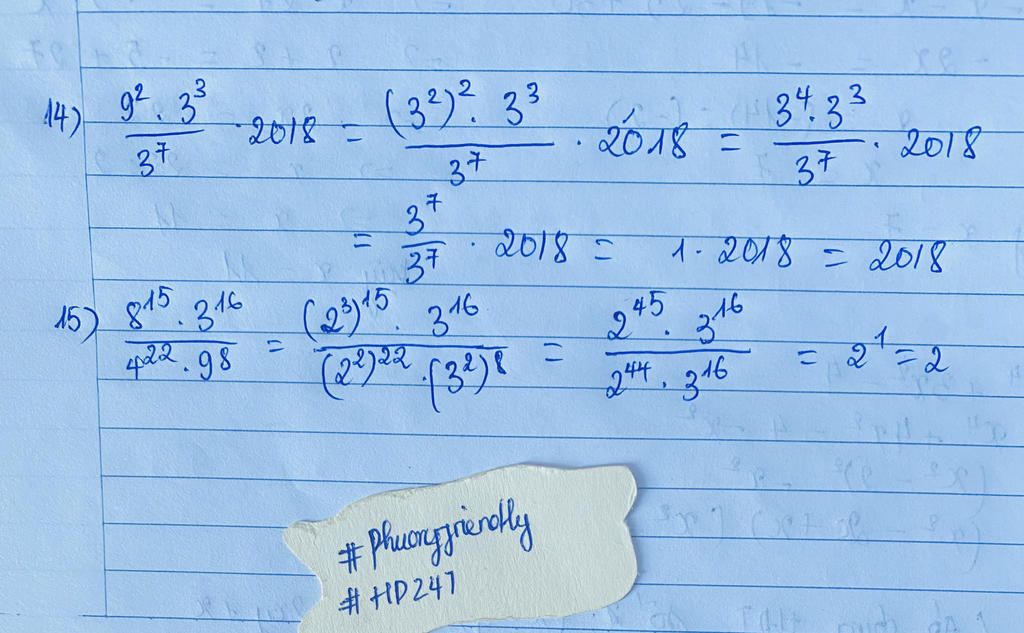 14) 9² · 3³ / 3⁷ · 2018 = (3²)² · 3³ / 3⁷ · 2018 = 3⁴ · 3³ / 3⁷ · 2018
= 3⁷ / 3⁷ · 2018 = 1 · 2018 = 2018
15) 8¹⁵ · 3¹⁶ / 4²² · 9⁸ = (2³)¹⁵ · 3¹⁶ / (2²)²² · (3²)⁸ = 2⁴⁵ · 3¹⁶ / 2⁴⁴ · 3¹⁶ = 2¹ = 2
#Phuongfriendly
#HD247